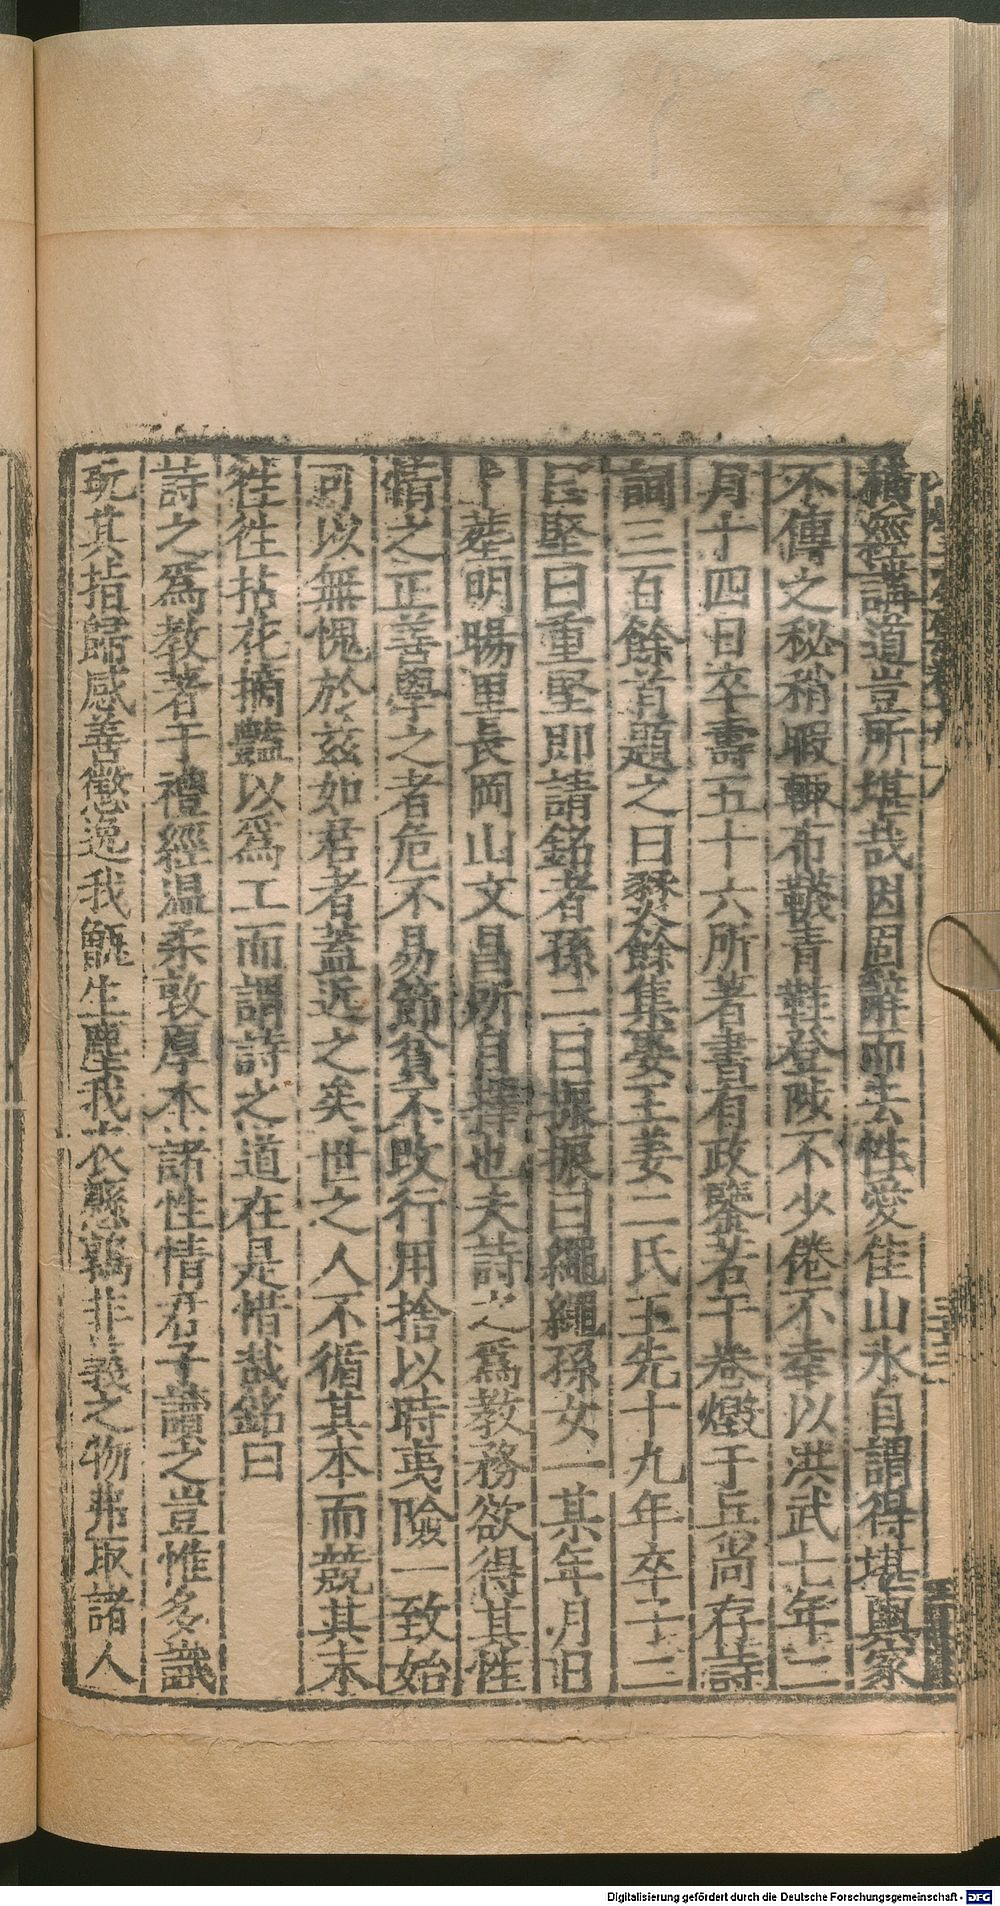 橫經講道豈所堪哉因固辭而去性愛佳山水自謂得堪輿家
不傳之秘稍暇輙布韈青鞋登陟不少倦不幸以洪武七年二
月十四日卒壽五十六所著書有政鑒若干卷燬于兵尚存詩
詞三百餘首題之曰燹餘集娶王姜二氏王先十九年卒子二
曰堅曰重堅即請銘者孫二曰振振曰繩繩孫女一某年月日
葬明暘里長岡山文昌所自擇也夫詩之爲教務欲得其性
情之正善學之者危不易節貧不改行用捨以時夷險一致始
可以無愧於兹如君者蓋近之矣世之人不循其本而競其末
徃徃拈花摘豔以爲工而謂詩之道在是惜哉銘曰
詩之爲教著于禮經温柔敦厚本諸性情君子讀之豈惟多識
玩其指歸感善懲逸我甑生塵我衣懸鶉非義之物弗取諸人
Digitalisierung gefördert durch die Deutsche Forschungsgemeinschaft - DFG